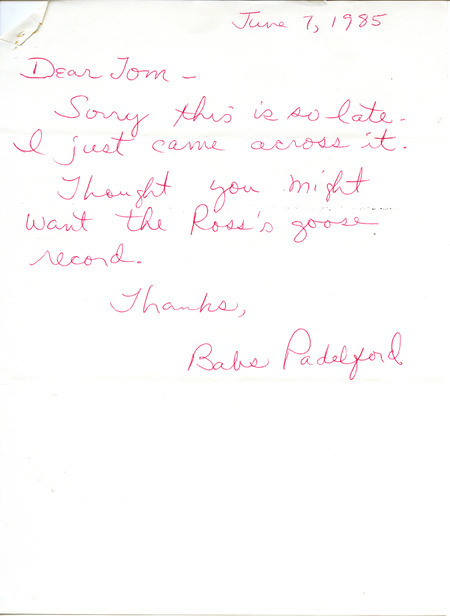 June 7, 1985
Dear Tom -
Sorry this is so late.
I just came across it.
Thought you might
want the Ross's goose
record.
Thanks,
Babs Padelford